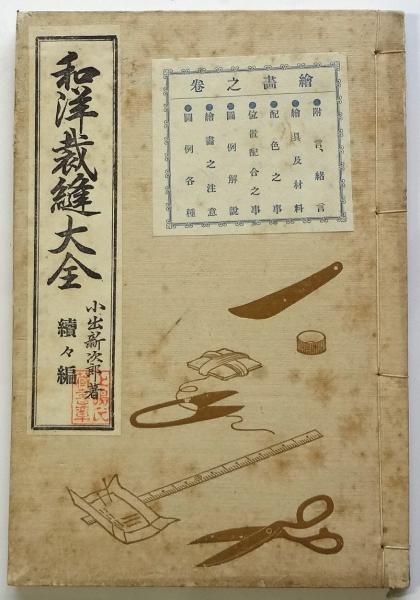 和洋裁縫大全
小出新次郎著
續々編
繪畫之卷
●附言、緒言
●繪具及材料
●配色之事
●位置配合之事
●圖例解說
●繪畫之注意
●圖例各種